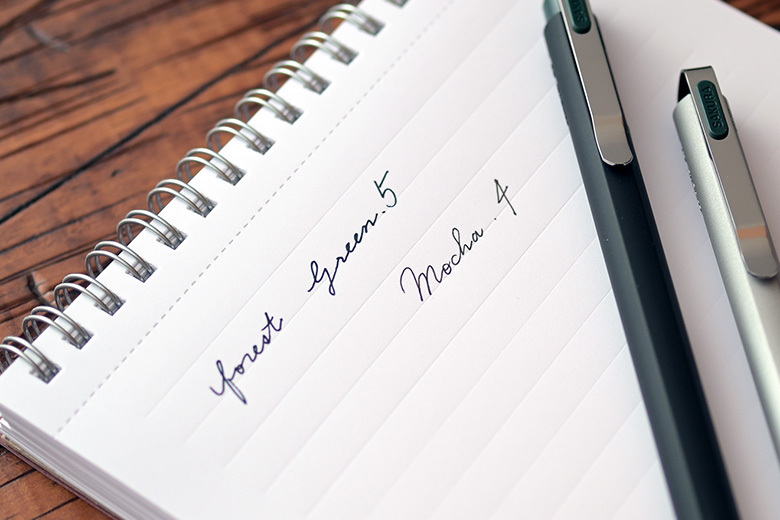 forest Green.5
Mocha.4